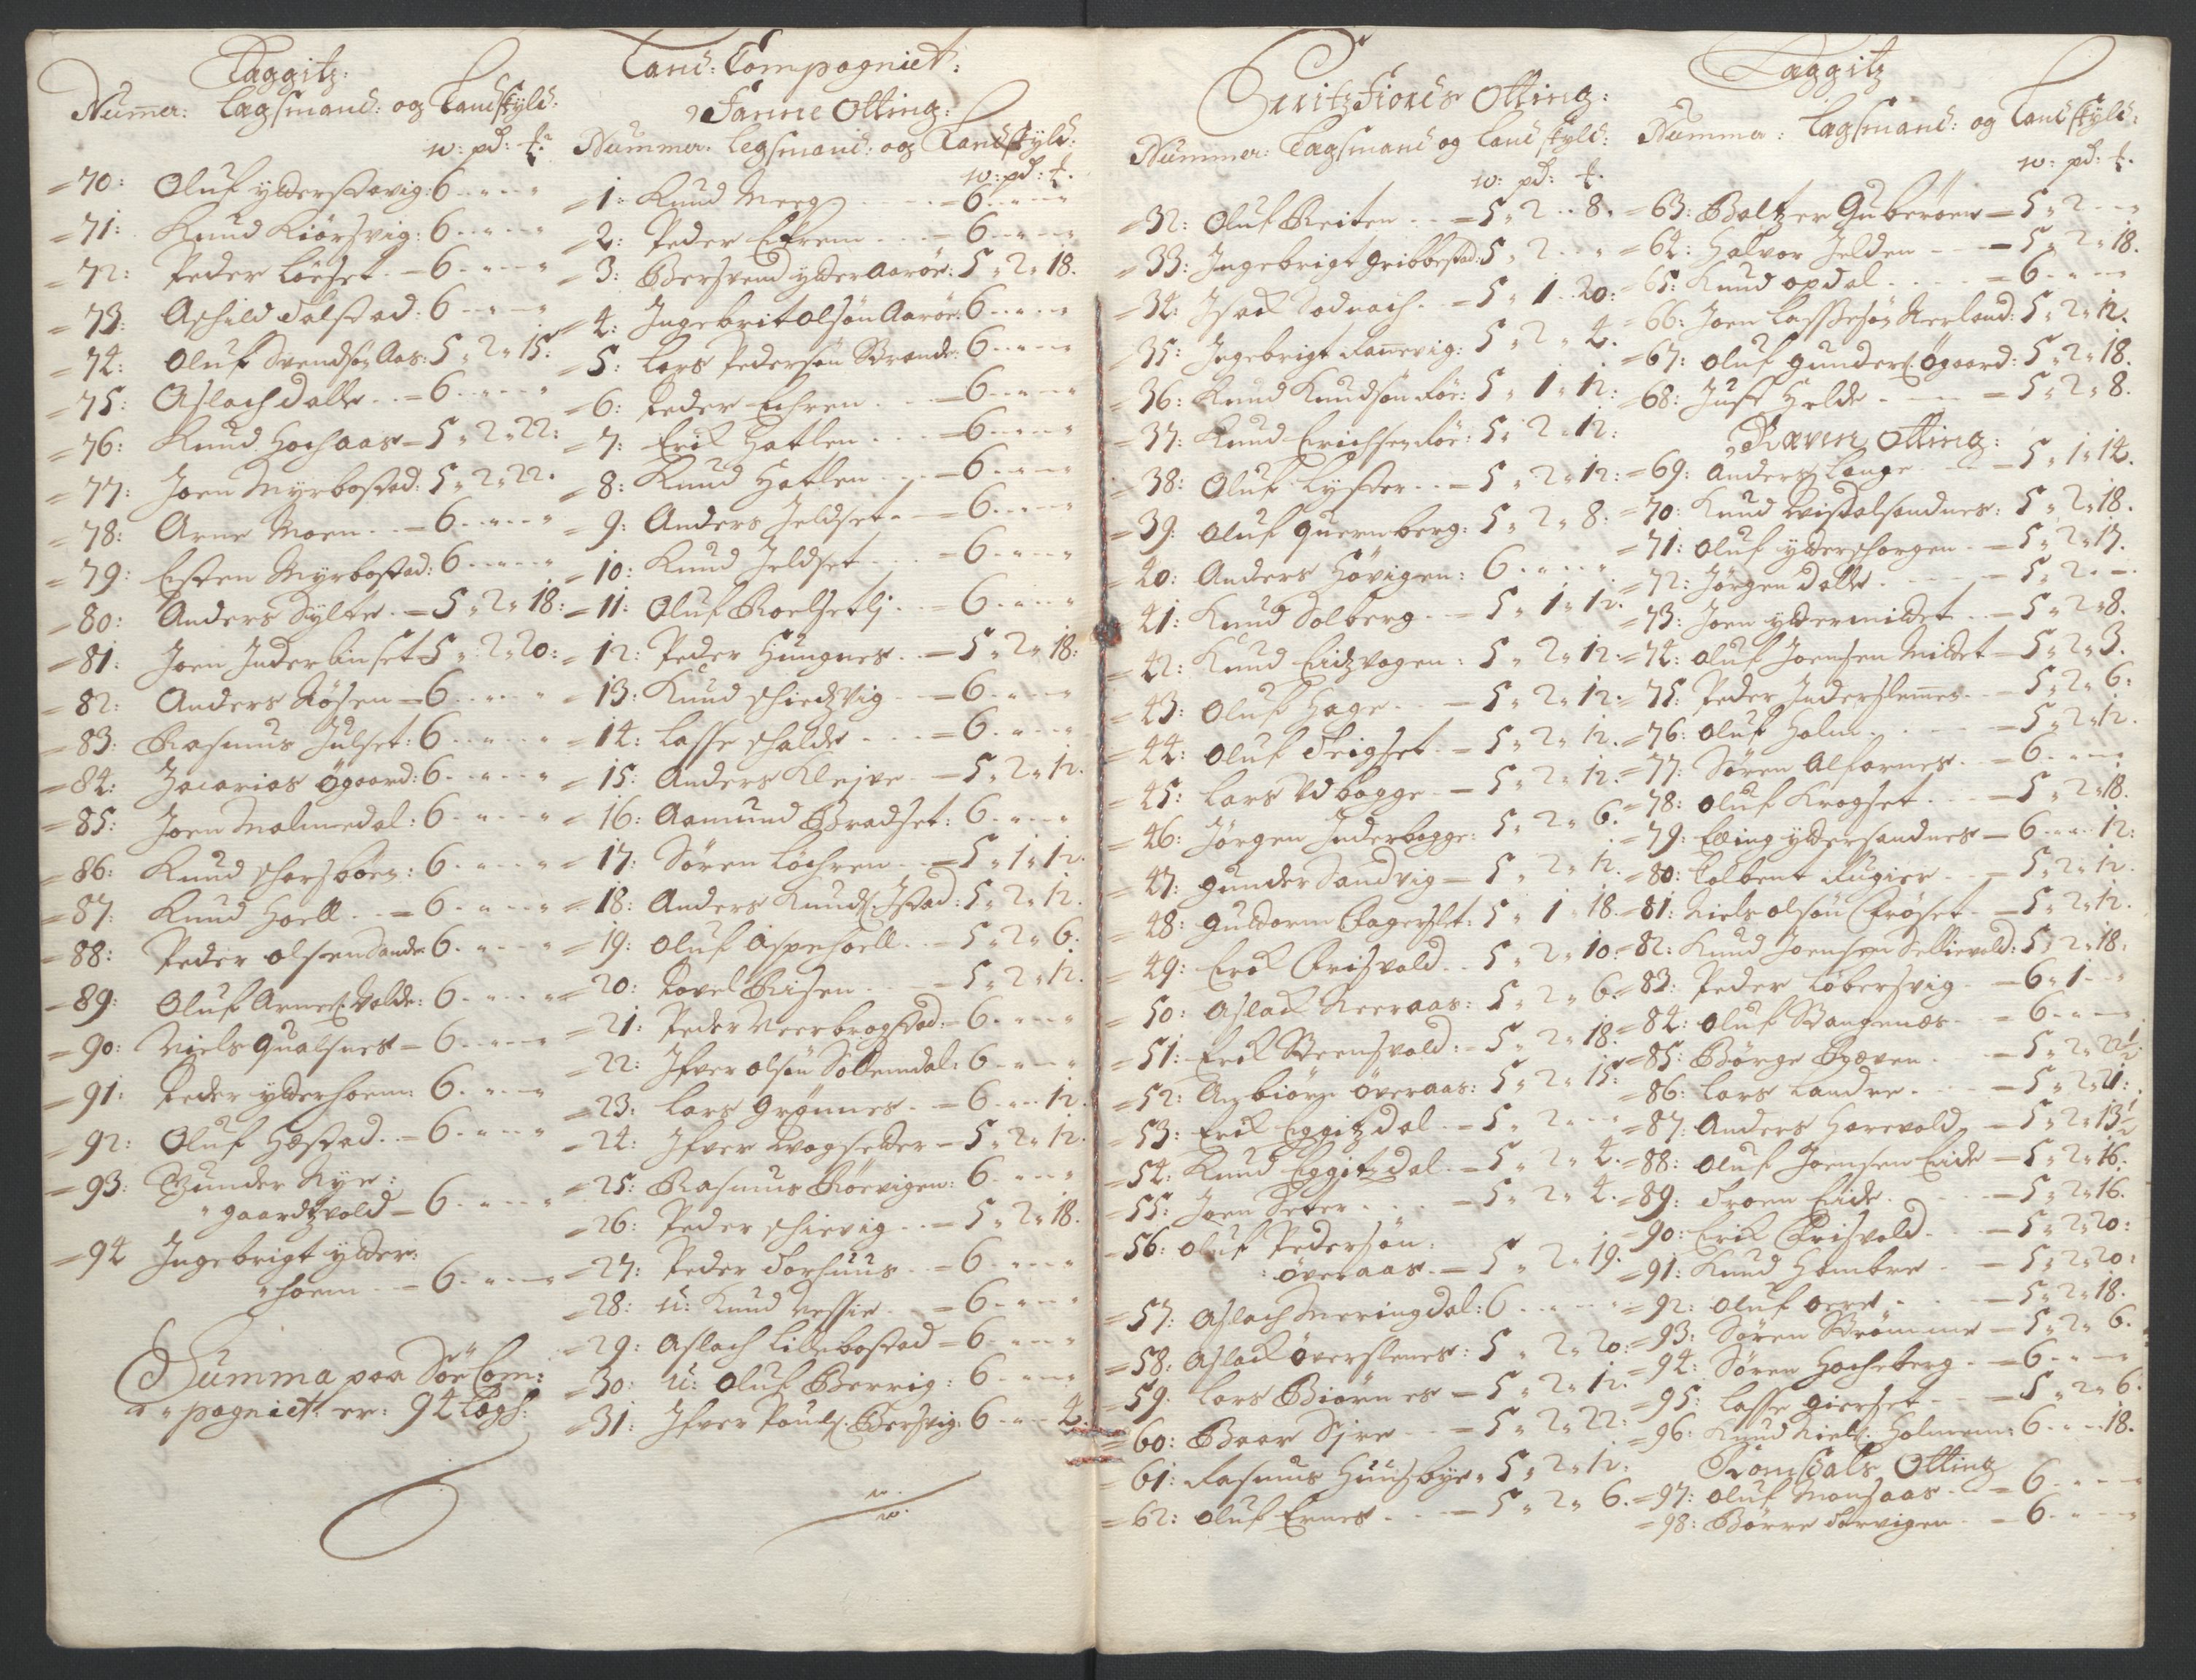 Laggitz:
Numer: Lagsmand: og Landskyld:
w: pd: t:
70: Oluf yttersavig: 6 " "
71: Knud Kiörsvig: 6 " "
72: Peder Löeset 6 " "
73: Aschild Dalsad: 6 " "
74: Oluf Svendsøn Aas: 5 " 2 " 15:
75: Aslach Dalle 6 " "
76: Knud Hochaas 5 " 2 " 22:
77: Joen Myrbostad: 5 " 2 " 22.
78: Arne Moen 6 " "
79: Esten Myrbostad: 6 " "
80: Anders Sylte 5 " 2 " 18:
81: Joen Inderbinset 5 " 2 " 20:
82: Anders Røsen 6 " "
83: Rasmus Julset: 6 " "
84: Zacarias Øgaard: 6 " "
85: Joen Malmedal: 6 " "
86: Knud schorsböen: 6 " "
87: Knud Hoell 6 " "
88: Peder olsen Sande 6 " "
89: Oluf Arnes: Volde: 6 " "
90: Niels Qualsnes 6 " "
91: Peder ytterhoem: 6 " "
92: Oluf Hæstad 6 " "
93: Gunder Nye:
gaardtzvold 6 " "
94 Ingebrigt ytter:
hoem 6 " "
Summa paa Söe Com:
pagniet: er: 94 Lægs:
Land: Compagniet:
Fanne Otting:
Nummer: Legsmand: og Landskyld:
w: pd: t.
1: Knud Meeg 6 " "
2: Peder Efrem 6 " "
3: Bersvend ytter Aaröe: 5 " 2 " 18.
4: Ingebrit olsön Aaröe: 6 " "
5: Lars Pedersön Strande: 6 " "
6: Peder Echren 6 " "
7: Erik Hatlen 6 " "
8: Knud Hatlen 6 " "
9: Anders Jeldset 6 " "
10: Knud Jeldset 6 " "
11: Oluf Roelsetlj 6 " "
12: Peder Hungnes 5 " 2 " 18:
13: Knud schiedzvig 6 " "
14: Lasse schalde 6 " "
15: Anders Klejve 5 " 2 " 12.
16: Aamund Bradset: 6 " "
17: Søren Löchren 5 " 1 " 12.
18: Anders Knuds: Istad: 5 " 2 " 12.
19: Oluf Aspehoell 5 " 2 " 6.
20: Povel Risen 5 " 2 " 12.
21: Peder Veerbrogstad: 6 " "
22: Ifver olsön Sollemdal: 6 " "
23: Lars Grønnes 6 " " 12.
24: Ifver Vogsetter 5 " 2 " 12.
25: Rasmus Röevigen: 6 " "
26: Peder schievig 5 " 2 " 18.
27: Peder Forhuus 6 " "
28: u: Knud Nessie 6 " "
29: Aslach Lillebostad 6 " "
30: u: Oluf Berrig: 6 " "
31: Ifver Pouls: Bersvig: 6 " " 4.
Fiords Otting:
Nummer: Lagsmand og Landskyld:
w: pd: t.
32: Oluf Reiten 5 " 2 " 8.
33: Ingebrigt Gribbestad: 5 " 2 "
34: Isack Rodnach 5 " 1 " 20:
35: Ingebrigt Fannevig: 5 " 2 " 4.
36: Knud Knudsön Röe: 5 " 1 " 12:
37: Knud Erichsen Röe: 5 " 2 " 12:
38: Oluf Lyster 5 " 2 " 12:
39: Oluf Quernberg: 5 " 2 " 8:
40: Anders Høvigen: 6 " "
41: Knud Solberg 5 " 1 " 12.
42: Knud Eidzvogen: 5 " 2 " 12.
43: Oluf Hage 5 " 2 " 12.
44: Oluf Frigset 5 " 2 " 12.
45: Lars Udbogge 5 " 2 " 12.
46: Jørgen Inderbogge: 5 " 2 " 6.
47: Gunder Sandvig 5 " 2 " 12.
48: Guttorm Bagerslt: 5 " 1 " 18.
49: Erik Crisvold 5 " 2 " 10.
50: Aslack Neeraas: 5 " 2 " 6.
51: Erik Steensvold: 5 " 2 " 18.
52: Anbiörn Överaas: 5 " 2 " 15:
53: Erik Eggitzdal 5 " 2 "
54: Knud Eggitzdal 5 " 2 " 4.
55: Joen Seter 5 " 2 " 4.
56: Oluf Pedersön:
överaas 5 " 2 " 19.
57: Aslach Meringdal: 6 " "
58: Aslack Överslenes: 5 " 2 " 20:
59. Lars Biørnes 5 " 2 " 12.
60: Baar Sjre 5 " 2 " 22:
61: Rasmus Huusbye 5 " 2 " 12:
62: Oluf Ernes 5 " 2 " 6.
Laggitz
Nummer: Lagsmand: og Landskyld:
w: pd: t.
63: Baltzer Guberöen 5 " 2 "
64: Halvor Jelden 5 " 2 " 18.
65: Knud opdal 6 " "
66: Joen Lassesøn Nerland: 5 " 2 " 12.
67: Oluf Gunders: Øgaard: 5 " 2 " 18.
68: Just Helde 5 " 2 " 8.
Ræven Otting:
69: Anders Lange 5 " 1 " 14.
70: Knud Vistalsandnes: 5 " 2 " 18.
71: Oluf ytterschorgen 5 " 2 " 17.
72: Jørgen Dalle 5 " 2 "
73: Joen yttermittet 5 " 2 " 8.
74: Oluf Joensen Mittet 5 " 2 " 3.
75: Peder Inderslemes 5 " 2 " 6:
76: Oluf Holm 5 " 2 " 12.
77: Søren Alfarnes 6 " "
78: Oluf Krogset 5 " 2 " 18.
79: Elling yttersandnes 6 " " 12:
80: Tolbent Fugier 5 " 2 " 12.
81: Niels olsön Frøset 5 " 2 " 12.
82: Knud Joensen Sellievold: 5 " 2 " 18.
83: Peder Løbersvig 6 " 1 "
84: Oluf Vangenæs 6 " "
85: Børge Bræven 5 " 2 " 22½
86: Lars Landre 5 " 2 " 21:
87: Anders Horevold 5 " 2 " 13½
88: Oluf Joensen Eide 5 " 2 " 16.
89: Troen Eide 5 " 2 " 16.
90: Erik Crisvold 5 " 2 " 20:
91: Knud Hambre 5 " 2 " 20:
92: Oluf oere 5 " 2 " 18.
93: Søren Strömme 5 " 2 " 6.
94: Søren Hocheberg 6 " "
95: Lasse Gierset 5 " 2 " 6.
96: Knud Niels: Holmem: 6 " " 18.
Romsdals Otting
97: Oluf Monsaas 6 " "
98: Børre Torvigen 6 " "